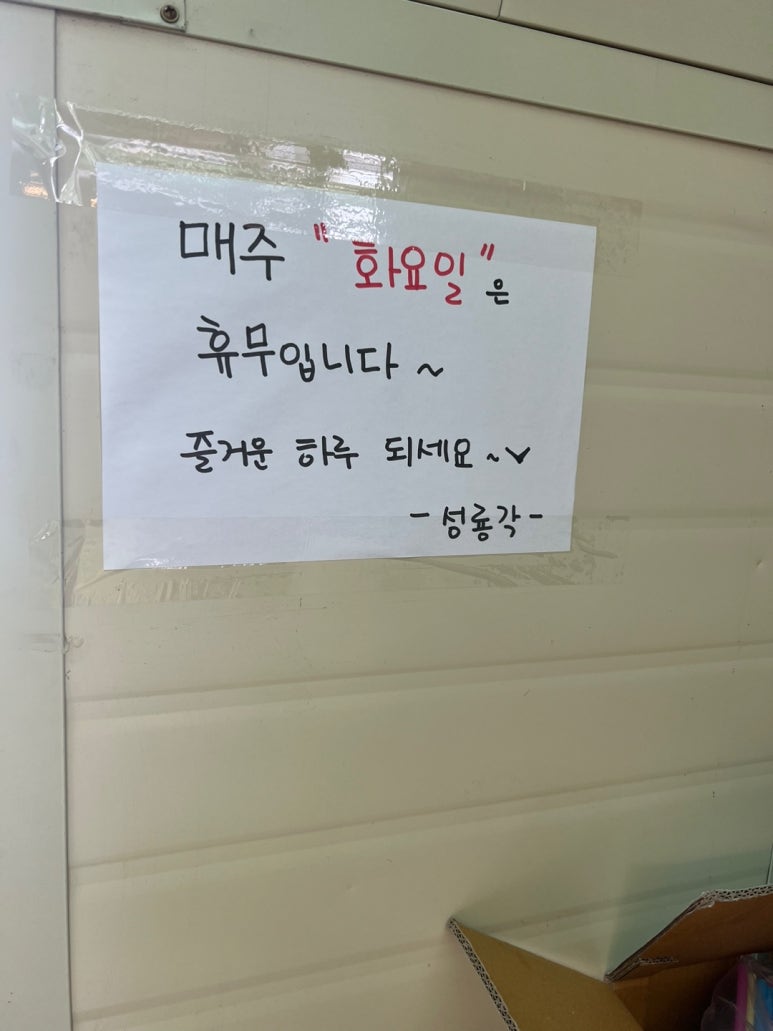 매주 "화요일"은
휴무입니다~
즐거운 하루 되세요~
-성룡각-